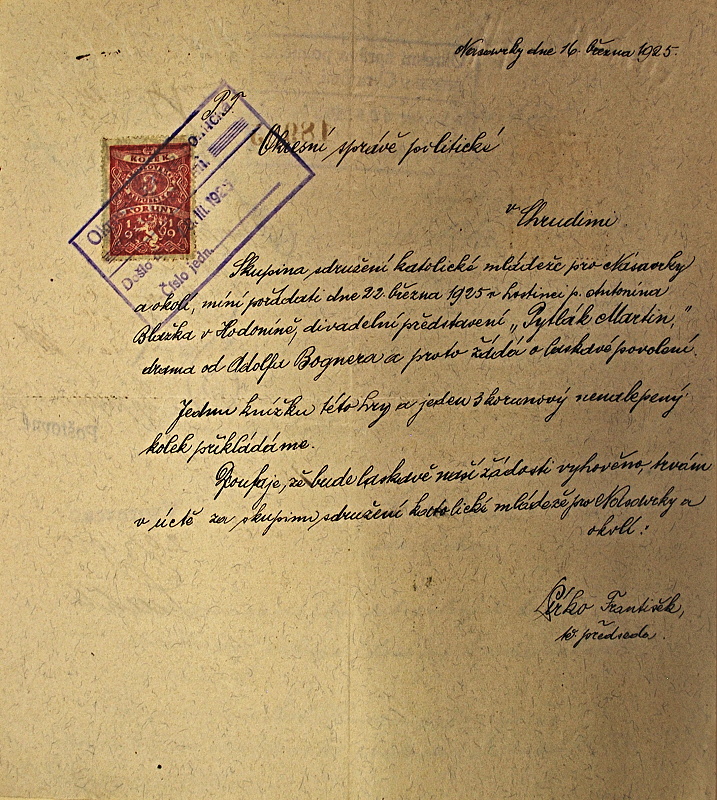 Nasavrky dne 16. března 1925.
P. T.
Okresní správě politické
v Chrudimi
KOLEK
3
KORUNY
19
Došlo III. 1925
Číslo jedn.
Skupina sdružení katolické mládeže pro Nasavrky
a okolí, míní pořádati dne 22. března 1925 v hostinci p. Antonína
Blažka v Hodoníně, divadelní představení „Pytlák Martin,"
drama od Adolfa Bognera a proto žádá o laskavé povolení.
Jednu knížku této hry a jeden 3 korunový nenalepený
kolek přikládáme.
Doufaje, že bude laskavě naší žádosti vyhověno, trvám
v úctě za skupinu sdružení katolické mládeže pro Nasavrky a
okolí:
František,
předseda.